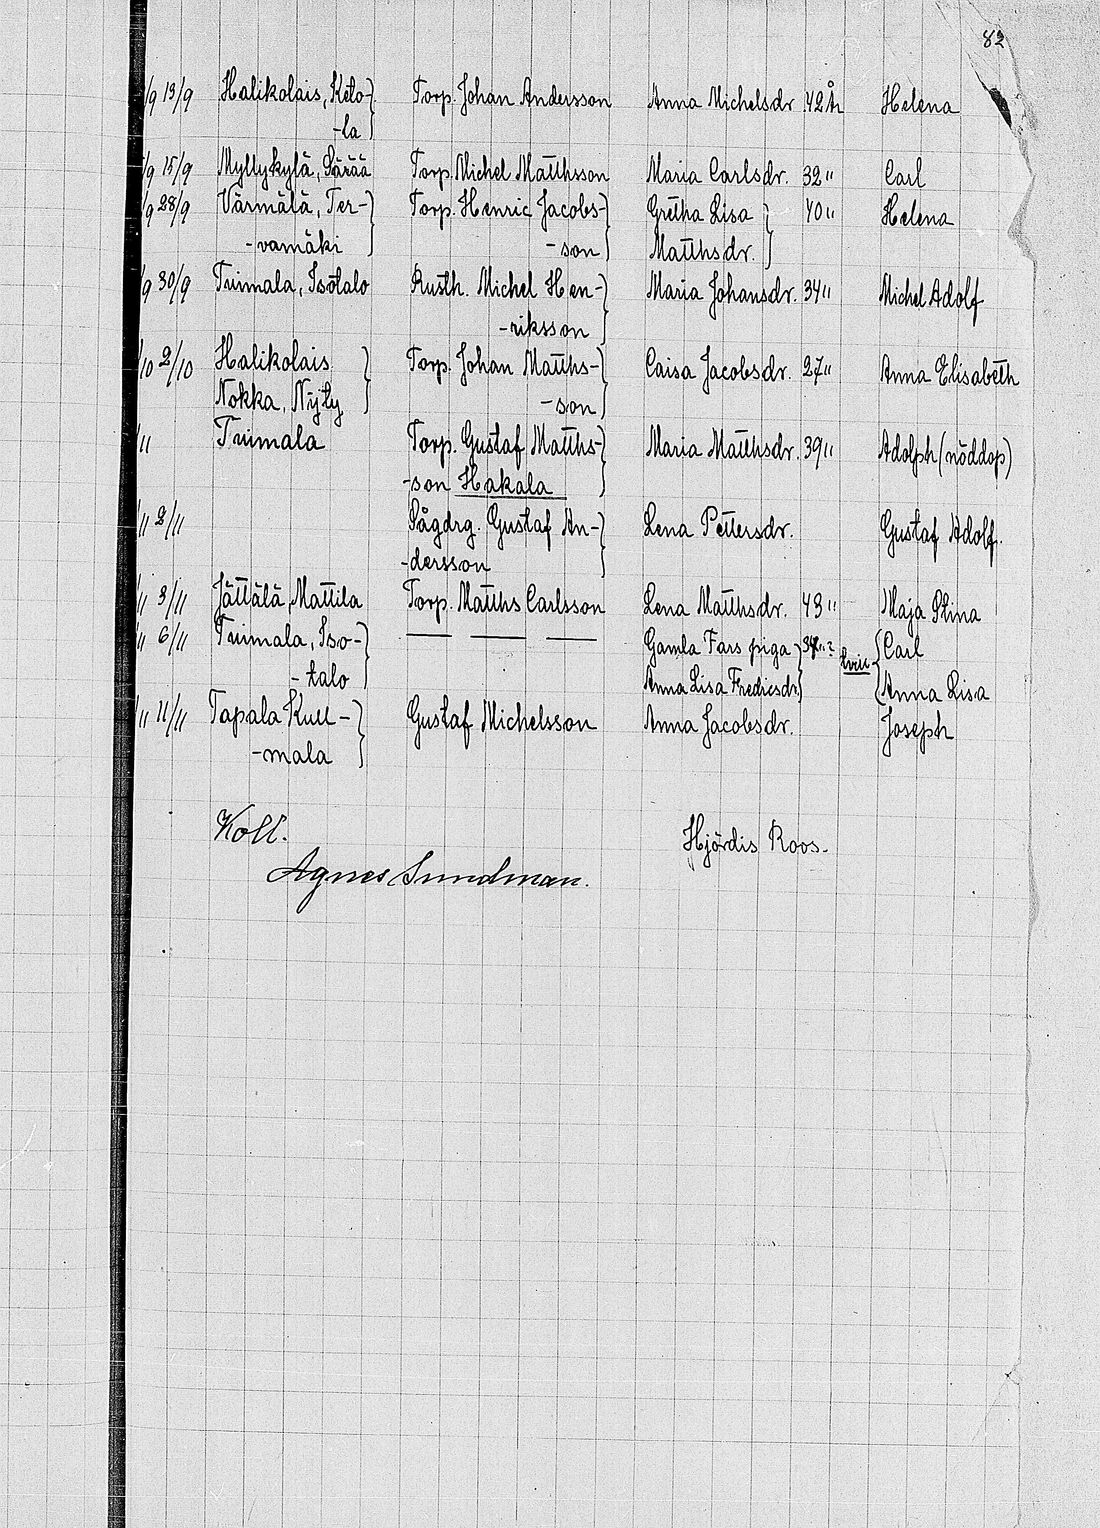 82
/9 13/9 Halikolais, Keto- Torp. Johan Andersson Anna Michelsdr 42 år Helena
-la
/9 15/9 Myllykylä, Särää Torp. Michel Matthsson Maria Carlsdr. 32 " Carl
/9 28/9 Värmälä, Ter- Torp. Henric Jacobs- Gretha Lisa 40 " Helena
-vamäki -son Matthsdr.
/9 30/9 Tuimala, Isotalo Rusth. Michel Hen- Maria Johansdr. 34 " Michel Adolf
-riksson
/10 2/10 Halikolais Torp. Johan Matths- Caisa Jacobsdr. 27 " Anna Elisabeth
Nokka, Nyby -son
/11 Tuimala Torp. Gustaf Matths- Maria Matthsdr. 39 " Adolph (nöddop)
-son Hakala
/11 2/11 Sågdrg. Gustaf An- Lena Pettersdr. Gustaf Adolf.
-dersson
/11 3/11 Jättälä, Mattila Torp. Matths Carlsson Lena Matthsdr. 43 " Maja Stina
/11 6/11 Tuimala, Iso- — — — Gamla Fars piga 34 " ? Carl
-talo Anna Lisa Fredicsdr. Anna Lisa
/11 11/11 Tapala Kull- Gustaf Michelsson Anna Jacobsdr. Joseph
-mala
Koll. Hjördis Roos.
Agnes Sundman.